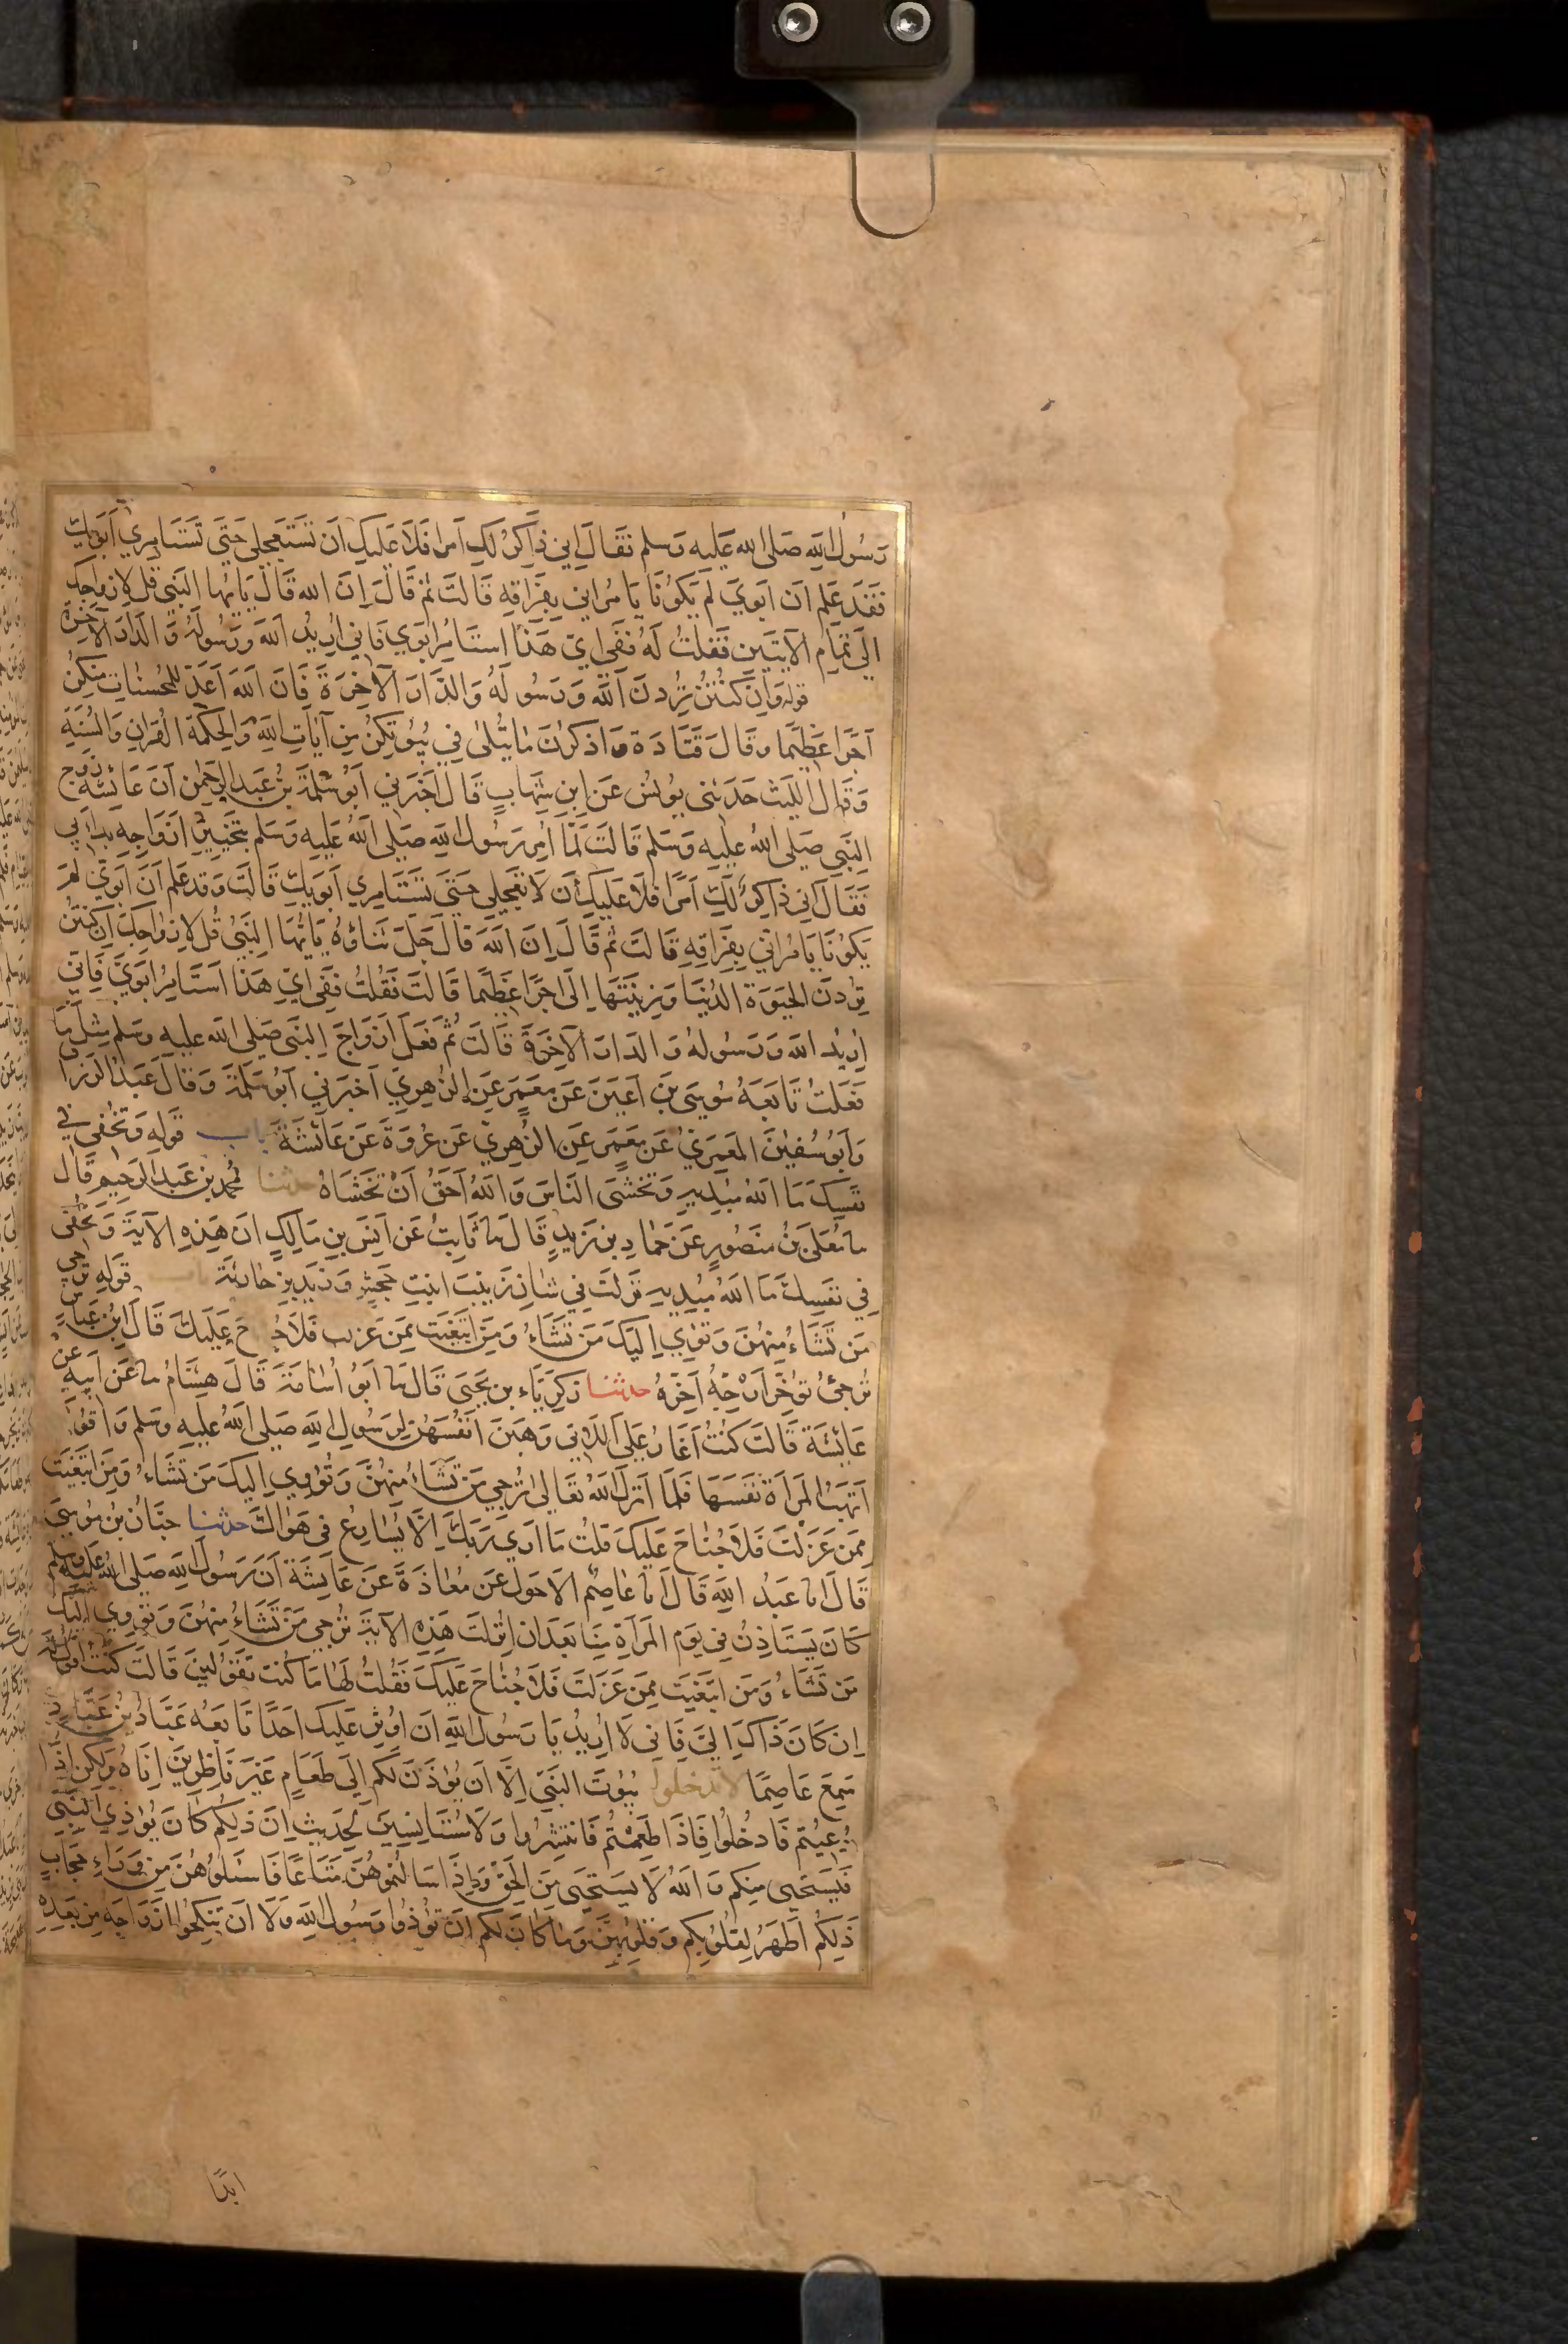 رَسُولُ اللَّهِ صَلى الله عَليه وَسلم فقَالَ اِني ذَاكِرٌ لَكِ اَمرا فَلاَ عَليكِ اَن تَستَعجِلي حَتَى تَستَامِري اَبَوَيكِ
فَقَد عَلِم اَن اَبَوَيَ لَم يَكُونَا يَامُرَاني بِفِرَاقِهِ قَالَت ثم قَالَ اِنَ الله قَالَ يَايُها النَبي قُل لازوَاجِكَ
اِلَى تَمَامِ الآيَتَينِ فَقُلتُ لَهُ فَفي ايِّ هَذَا استَامِرُ ابَوَي فَاِني اُرِيدُ اللهَ وَرَسُولَهُ وَالدَارَ الآخِرَةَ
قوله وَاِن كُنتُنَ تُرِدنَ اللَّه وَرَسُولَهُ وَالدَارَ الآخِرَةَ فَاِنَ اللهَ اَعَدَ لِلمُحسِنَاتِ مِنكُنَ
اَجرًا عَظِيمًا وقَالَ قَتَادَة وَاذكُرنَ مَا يُتلَى في بُيُوتِكُنَ مِن آيَاتِ اللَّهِ وَالحِكمَةِ القُرانِ وَالسُنَةِ
وَقَالَ اللَيث حَدَثَني يُونُسُ عَنِ ابنِ شِهَابٍ قَالَ اَخبَرَني اَبُو سَلَمَةَ بنُ عَبدِ الرَحمٰنِ اَنَ عَائشَة زوج
النَبي صَلى اللهُ عَليه وَسَلم قَالَت لَمَّا اُمِرَ رَسُولُ اللَّهِ صَلى اللهُ عَليهِ وَسَلم بِتَخيِيرِ اَزوَاجِه بَدَا بي
فَقَالَ اِني ذَاكِرٌ لَكِ اَمرًا فَلَا عَلَيكِ اَن لَا تَعجَلي حَتَى تَستَامِرِي اَبَوَيكِ قَالَت وَقد عَلِمَ اَنَ اَبَوَيَ لَم
يَكُونَا يَامُرَاني بِفِرَاقِهِ قَالَت ثُم قَالَ اِنَ اللهَ قَالَ جَلَ ثَنَاؤُهُ يَايُهَا النَبِيُ قُل لازوَاجِكَ اِن كُنتُنَ
تُرِدنَ الحَيَوةَ الدُنيَا وَزِينَتَهَا اِلَى اَجرًا عَظِيمًا قَالَت فَقُلتُ فَفي ايِّ هَذَا اَستَامِرُ ابَوَيَّ فَاِني
اُرِيدُ اللهَ وَرَسُولهُ وَالدَارَ الآخِرَةَ قَالَت ثُم فَعَلَ اَزوَاجُ النَبي صَلى الله عليه وسَلم مِثلَ مَا
فَعَلتُ تَابَعَهُ مُوسَى بنُ اَعيَنَ عَن مَعمَرٍ عَنِ الزُهرِي اَخبَرَني اَبُو سَلَمَةَ وَقَالَ عَبدُ الرَزا
وَاَبُو سُفيٰنَ المَعمَرِيُ عَن مَعمَرٍ عَنِ الزُهرِي عَن عُروَةَ عَن عَائشَةَ باب قَولِهِ وَتُخفِي في
نَفسِكَ مَا اللهُ مُبدِيهِ وَتَخشَى النَاسَ وَاللهُ اَحَقُ اَن تَخشَاهُ حدثنا مُحمد بن عَبد الرَحِيم قَالَ
نا مُعَلَى بنُ مَنصُورٍ عَن حَمادِ بنِ زَيدٍ قَالَ نا ثَابِتٌ عَن اَنَسِ بنِ مَالِكٍ ان هَذِهِ الآيَةَ وَتُخفي
في نَفسِكَ مَا اللهُ مُبدِيهِ نَزَلَت في شَانِ زَينَبَ ابنَتِ جَحشٍ وَزَيدِ بنِ حَارِثَةَ باب قَولِهِ تُرجِي
مَن تَشَاءُ مِنهُنَ وَتُؤوِي اِلَيكَ مَن تَشَاءُ وَمَنِ ابتَغَيتَ مِمَن عَزَلتَ فَلاَ جُنَاحَ عَلَيكَ قَالَ ابنُ عَبَاسٍ
تُرجِئُ تُؤَخِرُ اَرجِهُ اَخِرهُ حدثنا زكَرِيَاءُ بن يَحيَى قَالَ نا اَبُو اُسَامَةَ قَالَ هِشَامُ نا عَن اَبِيهِ عن
عَائِشَة قَالَت كُنتُ اَغَارُ عَلَى اللَاتي وَهَبنَ اَنفُسَهُنَ لِرَسُولِ اللهِ صَلى اللهُ عَليهِ وَسَلم وَاَقُولُ
اَتَهَبُ المَرأةُ نَفسَهَا فَلَمَا اَنزَلَ اللهُ تعَالى تُرجِي مَن تَشَاءُ مِنهُنَ وَتُؤوِي اِلَيكَ مَن تَشَاءُ وَمَنِ ابتَغَيتَ
مِمَن عَزَلتَ فَلاَ جُنَاحَ عَلَيكَ قُلتُ مَا اَرَى رَبَكَ اِلَّا يُسَارِعُ في هَوَاكَ حدثنا حبَّانُ بن مُوسَى
قَالَ انا عَبدُ اللهِ قَالَ انا عَاصِمُ الاَحوَلُ عَن مُعَاذَةَ عَن عَائِشَة اَنَ رَسُولَ اللهِ صَلى اللهُ عَليه وسلم
كَانَ يَستَاذِنُ في يَومِ المَرأةِ مِنَا بَعدَ ان اُنزِلَت هَذِهِ الآيَةُ تُرجِي مَن تَشَاءُ مِنهُنَ وَتُؤوِي اِلَيكَ
مَن تَشَاءُ وَمَنِ ابتَغَيتَ مِمَن عَزَلتَ فَلاَ جُنَاحَ عَلَيكَ فَقُلتُ لَهَا مَا كُنتِ تَقُولِينَ قَالَت كُنتُ اَقُولُ لَهُ
اِن كَانَ ذَاكَ اِلَيَ فَاِني لَا اُرِيدُ يَا رَسُولَ اللَّهِ اَن اُوثِرَ عَلَيكَ احَدًا تَابَعَهُ عَبَّادُ بنُ عَبَّادٍ
سَمِعَ عَاصِمًا لا تدخلوا بُيُوتَ النَبَي اِلَّا اَن يُؤذَنَ لَكُم اِلَى طَعَامٍ غَيرَ نَاظِرِينَ اِنَاهُ وَلَكِن اِذَا
دُعِيتُم فَادخُلُوا فَاِذَا طَعِمتُم فَانتَشِرُوا وَلَا مُستَانِسِينَ لِحَدِيثٍ اِنَ ذَلِكُم كَانَ يُؤذِي النَبَي
فَيَستَحيي مِنكُم وَاللهُ لَا يَستَحيي مِنَ الحَقِ وَاِذَا سَالتُمُوهُنَ مَتَاعًا فَاسئَلُوهُنَ مِن وَرَاءِ حِجَابٍ
ذَلِكُم اَطهَرُ لِقُلُوبِكُم وَقُلُوبِهِنَ وَمَا كَانَ لَكُم اَن تُؤذُوا رَسُولَ اللَّهِ وَلَا اَن تَنكِحُوا اَزوَاجَهُ مِن بَعدِهِ
ابدًا